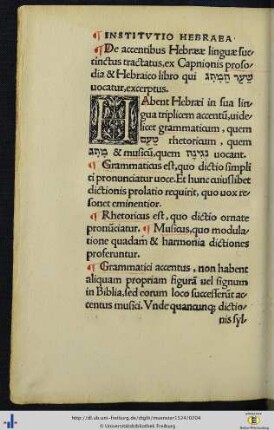 ¶ INSTITVTIO HEBRAEA
¶ De accentibus Hebrææ linguæ suc
tinctus tractatus, ex Capnionis proso
dia & Hebraico libro qui שַׁעַר הַמֶּתֶג
uocatur, excerptus.
HAbent Hebræi in sua lin
gua triplicem accentũ, uide
licet grammaticum, quem
טַעַם rhetoricum, quem
מֶתֶג & musicũ, quem נְגִינָה uocant.
¶ Grammaticus est, quo dictio simpli
ti pronunciatur uoce. Et hunc cuiuslibet
dictionis prolatio requirit, quo uox re
sonet eminentior.
¶ Rhetoricus est, quo dictio ornate
pronũciatur. ¶ Musicus, quo modula-
tione quadam & harmonia dictiones
proferuntur.
¶ Grammatici accentus, non habent
aliquam propriam figurã uel signum
in Biblia, sed eorum loco successerũt ac
centus musici. Vnde quancunq; dictio
nis syl-
http://dl.ub.uni-freiburg.de/diglit/muenster1524/0204
© Universitätsbibliothek Freiburg